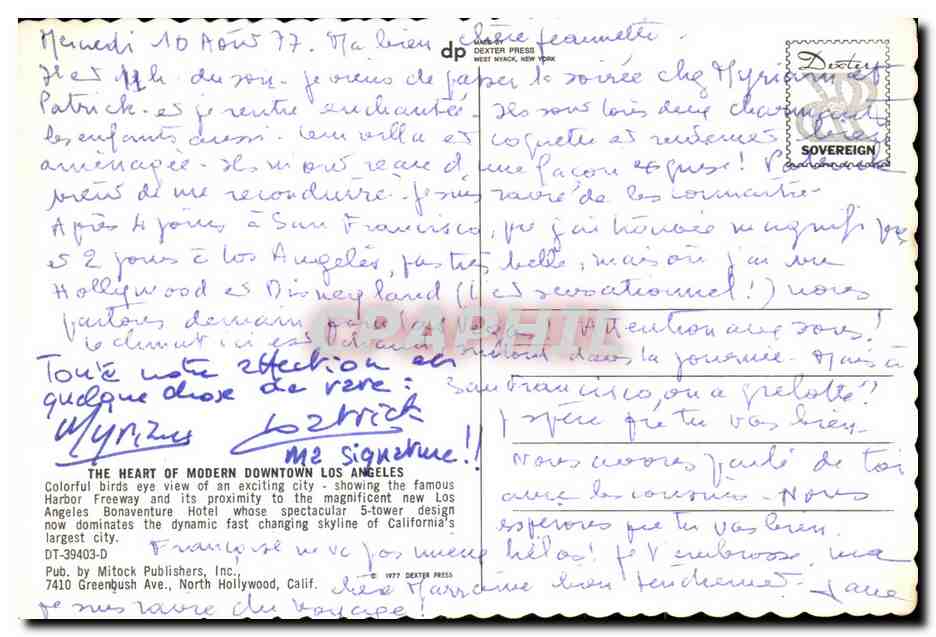 Mercredi 10 Août 77. Ma bien chère Jeannette.
dp MADE BY
DEXTER PRESS
WEST NYACK, NEW YORK
Dexter
SOVEREIGN
Il est 11h. du soir. je viens de passer la soirée chez Myriam et
Patrick. et je rentre enchantée. Ils sont tous deux charmants
les enfants aussi. leur villa est coquette et rudement bien
aménagée. Ils m'ont reçue d'une façon exquise! Patrick
vient de me reconduire. Je suis ravie de les connaître.
Après 4 jours à San Francisco, que j'ai trouvée magnifique
et 2 jours à Los Angelès, pas très belle, mais où j'ai vu
Hollywood et Disneyland (c'est sensationnel!) nous
partons demain pour Las Vegas. Attention aux sous!
le climat ici est surtout dans la journée. Mais à
San Francisco, on a grelotté!!
J'espère que tu vas bien.
Nous avons parlé de toi
avec les cousins. Nous
espérons que tu vas bien.
Toute notre affection en
quelque chose de rare :
Myriam Patrick
ma signature!!
GRAPHIL
THE HEART OF MODERN DOWNTOWN LOS ANGELES
Colorful birds eye view of an exciting city - showing the famous
Harbor Freeway and its proximity to the magnificent new Los
Angeles Bonaventure Hotel whose spectacular 5-tower design
now dominates the dynamic fast changing skyline of California's
largest city.
DT-39403-D
Pub. by Mitock Publishers, Inc.
7410 Greenbush Ave., North Hollywood, Calif.
© 1977 DEXTER PRESS
Françoise ne va pas mieux hélas! Je t'embrasse, ma
chère Marraine bien tendrement.
je suis ravie du voyage!